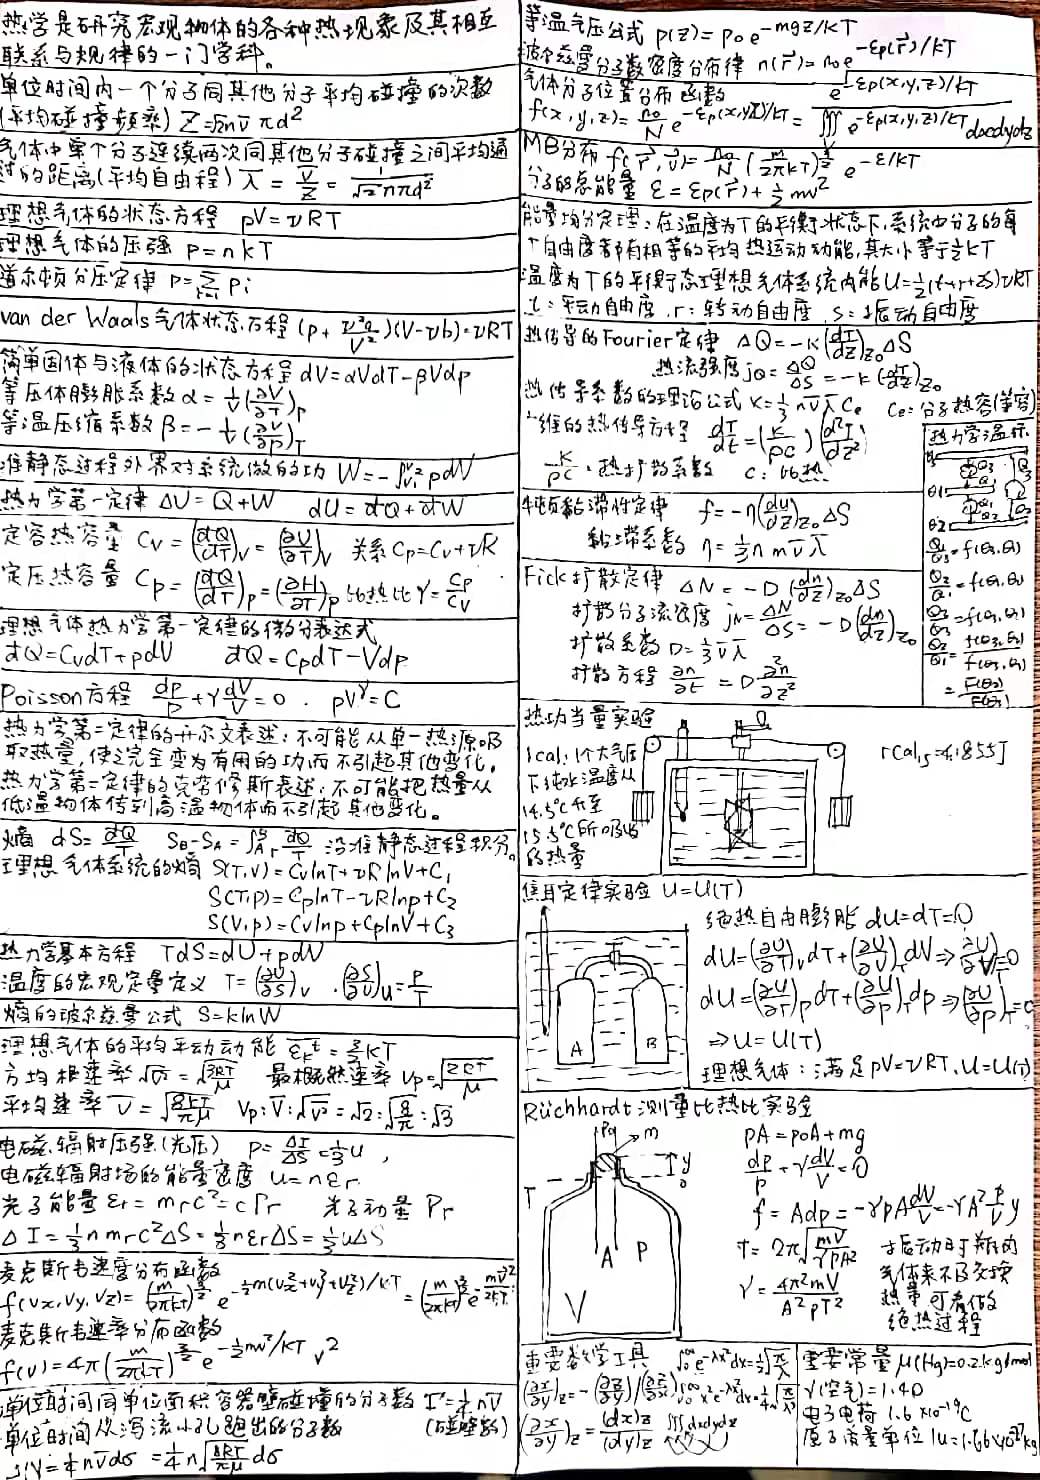 热学是研究宏观物体的各种热现象及其相互
联系与规律的一门学科。
单位时间内一个分子同其他分子平均碰撞的次数
(平均碰撞频率) Z=√2 n v̄ πd²
气体中单个分子连续两次同其他分子碰撞之间平均通
过的距离(平均自由程) λ̄ = v̄/Z = 1/(√2 nπd²)
理想气体的状态方程 pV=νRT
理想气体的压强 p=nkT
道尔顿分压定律 p=Σ pi
van der Waals气体状态方程 (p+ν²a/V²)(V-νb)=νRT
简单固体与液体的状态方程 dV=αVdT-βVdp
等压体膨胀系数 α=1/V(∂V/∂T)p
等温压缩系数 β=-1/V(∂V/∂p)T
准静态过程外界对系统做的功 W=-∫pdV
热力学第一定律 ΔU=Q+W dU=đQ+đW
定容热容量 Cv=(đQ/dT)v=(∂U/∂T)v 关系 Cp=Cv+νR
定压热容量 Cp=(đQ/dT)p=(∂H/∂T)p 比热比 γ=Cp/Cv
理想气体热力学第一定律的微分表达式
đQ=CvdT+pdV đQ=CpdT-Vdp
Poisson方程 dp/p+γdV/V=0. pV^γ=C
热力学第二定律的开尔文表述:不可能从单一热源吸
取热量,使之完全变为有用的功而不引起其他变化。
热力学第二定律的克劳修斯表述:不可能把热量从
低温物体传到高温物体而不引起其他变化。
熵 dS=đQ/T SB-SA=∫đQ/T 沿准静态过程积分。
理想气体系统的熵 S(T,V)=CvlnT+νRlnV+C1
S(T,p)=CplnT-νRlnp+C2
S(V,p)=Cvlnp+CplnV+C3
热力学基本方程 TdS=dU+pdV
温度的宏观定量定义 T=(∂U/∂S)v .(∂S/∂V)u=p/T
熵的玻尔兹曼公式 S=klnW
理想气体的平均平动动能 ε̄kt=3/2kT
方均根速率 √v̄²=√(3RT/μ) 最概然速率 vp=√(2RT/μ)
平均速率 v̄=√(8RT/πμ) vp:v̄:√v̄²=√2:√(8/π):√3
电磁辐射压强(光压) p=ΔI/ΔS=1/3u,
电磁辐射场的能量密度 u=nεr
光子能量 εr=mrc²=cPr 光子动量 Pr
ΔI=1/3 n mrc²ΔS=1/3nεrΔS=1/3uΔS
麦克斯韦速度分布函数
f(vx,vy,vz)=(m/2πkT)^(3/2) e^(-½m(vx²+vy²+vz²)/kT)=(m/2πkT)^(3/2) e^(-mv²/2kT)
麦克斯韦速率分布函数
f(v)=4π(m/2πkT)^(3/2) e^(-½mv²/kT) v²
单位时间同单位面积容器壁碰撞的分子数 Γ=¼nv̄
单位时间从泻流小孔跑出的分子数 (碰壁数)
=¼nv̄dσ =¼n√(8RT/πμ)dσ
等温气压公式 p(z)=p0e^(-mgz/kT)
玻尔兹曼分子数密度分布律 n(r⃗)=n0e^(-εp(r⃗)/kT)
气体分子位置分布函数
f(x,y,z)=n0/N e^(-εp(x,y,z)/kT)=e^(-εp(x,y,z)/kT)/∭e^(-εp(x,y,z)/kT)dxdydz
MB分布 f(r⃗,v⃗)=n0/N(m/2πkT)^(3/2) e^(-ε/kT)
分子的总能量 ε=εp(r⃗)+½mv²
能量均分定理:在温度为T的平衡状态下,系统中分子的每
个自由度都有相等的平均热运动动能,其大小等于½kT
温度为T的平衡态理想气体系统内能 U=½(t+r+2s)νRT
t:平动自由度,r:转动自由度,s:振动自由度
热传导的Fourier定律 ΔQ=-κ(dT/dz)z0ΔS
热流强度 jQ=ΔQ/ΔS=-κ(dT/dz)z0
热传导系数的理论公式 κ=⅓nv̄λ̄Ce Ce:分子热容(等容)
一维的热传导方程 dT/dt=(κ/ρc)(d²T/dz²)
κ/ρc:热扩散系数 c:比热
牛顿黏滞性定律 f=-η(du/dz)z0ΔS
黏滞系数 η=⅓nmv̄λ̄
Fick扩散定律 ΔN=-D(dn/dz)z0ΔS
扩散分子流强度 jN=ΔN/ΔS=-D(dn/dz)z0
扩散系数 D=⅓v̄λ̄
扩散方程 ∂n/∂t=D∂²n/∂z²
热力学温标
θ3
Q3
Q1
θ1
Q1
Q2
θ2
=f(θ3,θ1)
Q2/Q1=f(θ1,θ2)
=F(θ2)/F(θ1)
热功当量实验
1cal:1个大气压
下纯水温度从
14.5℃升至
15.5℃所吸收
的热量
1Cal15=4.1855J
焦耳定律实验 U=U(T)
绝热自由膨胀 dU=dT=0
dU=(∂U/∂T)vdT+(∂U/∂V)TdV⇒(∂U/∂V)T=0
dU=(∂U/∂T)pdT+(∂U/∂p)Tdp⇒(∂U/∂p)T=0
⇒U=U(T)
理想气体:满足pV=νRT,U=U(T)
A
B
Rüchhardt测量比热比实验
p0
m
y
0
T
A
p
V
pA=p0A+mg
dp/p+γdV/V=0
f=Adp=-γpAdV/V=-γA²p/V y
T=2π√(mV/γpA²)
γ=4π²mV/A²pT²
气体来不及交换
热量可看做
绝热过程
重要数学工具 ∫e^(-λx²)dx=½√(π/λ)
(∂x/∂y)z=-(∂z/∂y)/(∂z/∂x) ∫x²e^(-λx²)dx=¼√(π/λ³)
(∂x/∂y)z=(dx)z/(dy)z ∭dxdydz
重要常量 μ(Hg)=0.2kg/mol
γ(空气)=1.40
电子电荷 1.6×10⁻¹⁹C
原子质量单位 1u=1.66×10⁻²⁷kg